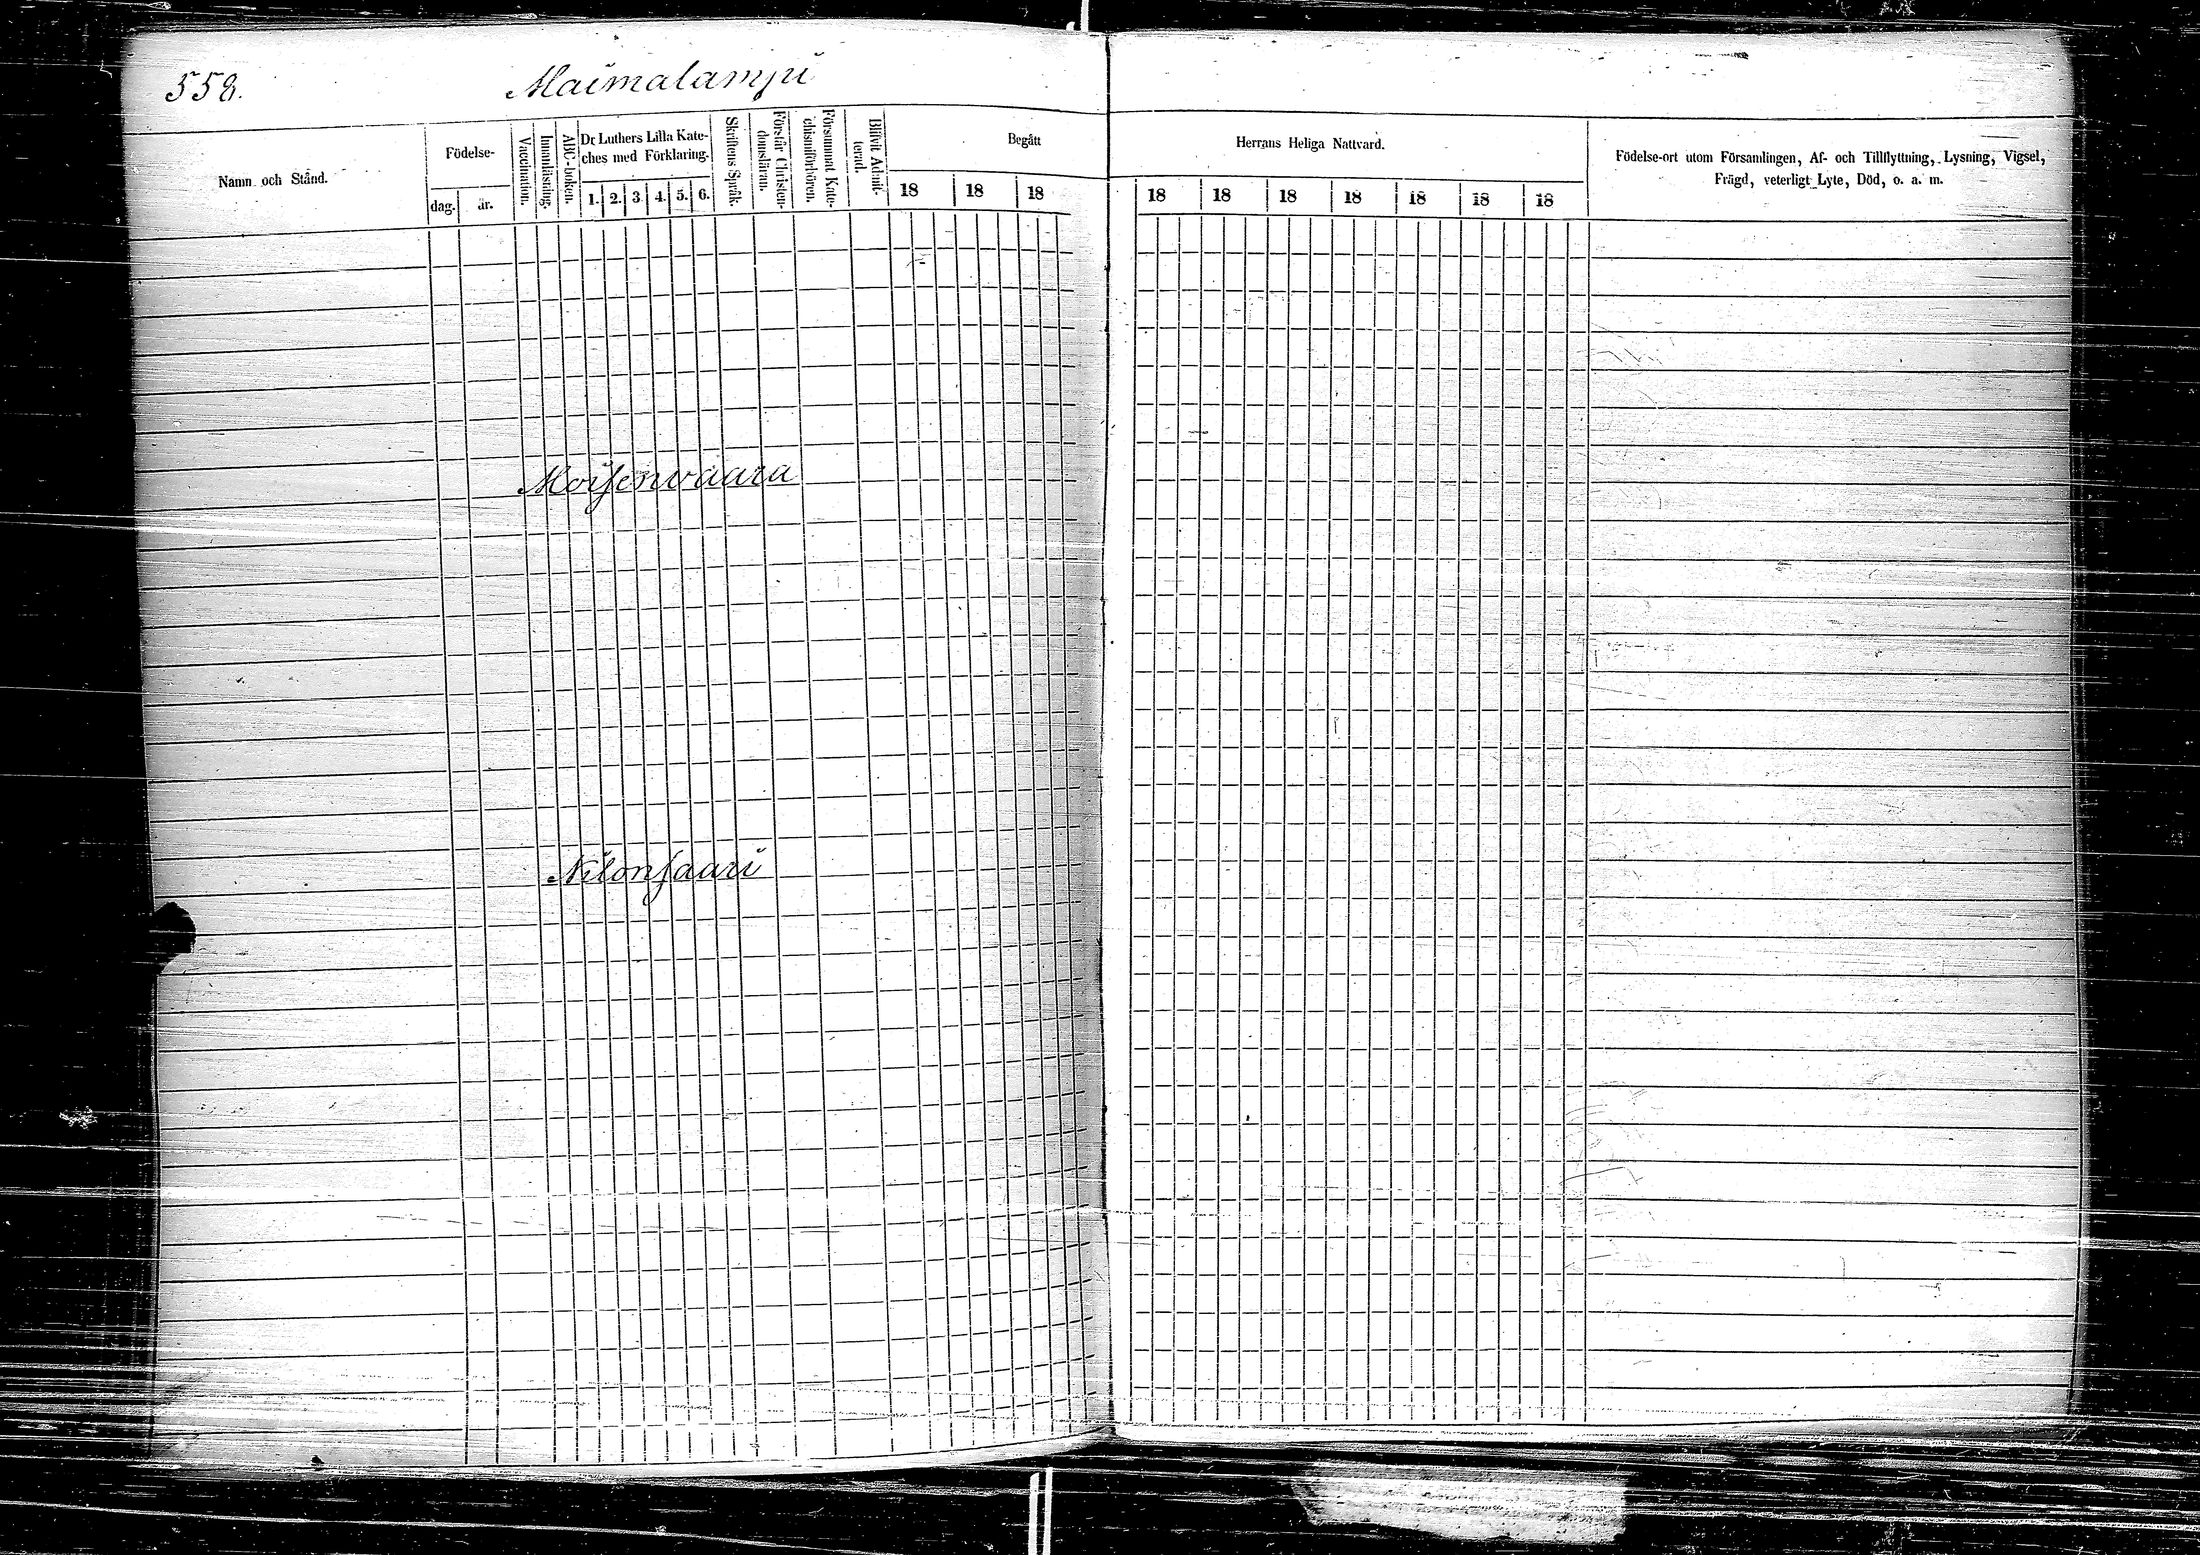 558.
Maimalampi
Namn och Stånd.
Födelse-
dag.
år.
Vaccination.
Innanläsning.
ABC-boken.
Dr Luthers Lilla Kate-
ches med Förklaring.
1. 2. 3. 4. 5. 6.
Skriftens Språk.
Förstår Christen-
domsläran.
Försummat Kate-
chismiförhören.
Blifvit Admit-
terad.
Begått
18 18 18
Herrans Heliga Nattvard.
18 18 18 18 18 18 18
Födelse-ort utom Församlingen, Af- och Tillflyttning, Lysning, Vigsel,
Frägd, veterligt Lyte, Död, o. a. m.
Moisenvaara
Nilonsaari